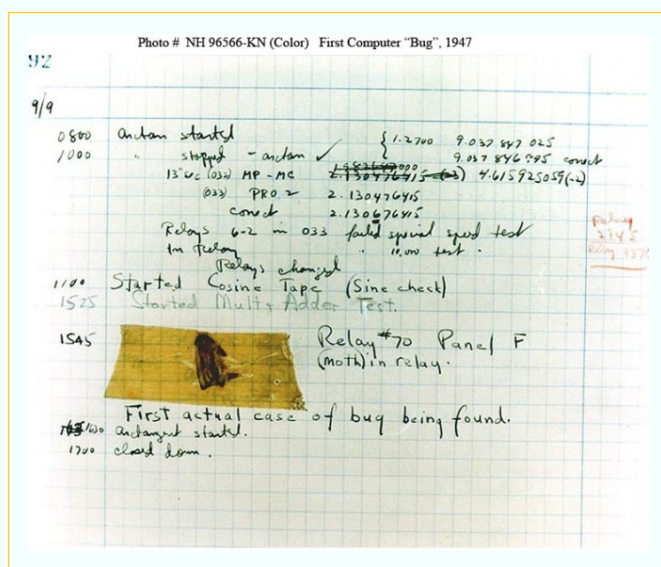 Photo # NH 96566-KN (Color) First Computer "Bug", 1947
92
9/9
0800 antan started
1000 " stopped - antan ✓ { 1.2700 9.037 847 025
9.037 846 995 conect
13"uc (032) MP - MC 2.130476415 (-3) 4.615925059(-2)
(033) PRO 2 2.130476415
conect 2.130676415
Relays 6-2 in 033 failed special speed test
In Relay " 10,000 test.
Relays changed
1100 Started Cosine Tape (Sine check)
1525 Started Mult + Adder Test.
1545 Relay #70 Panel F
(moth) in relay.
First actual case of bug being found.
1600 antangent started.
1700 closed down.
Relay
2145
Relay 3370